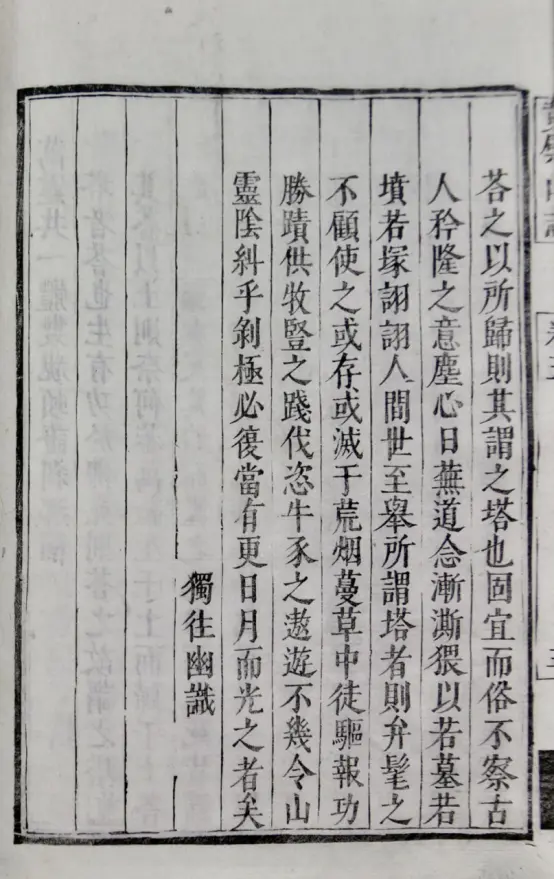 荅之以所歸則其謂之塔也固宜而俗不察古
人矜隆之意塵心日蕪道念漸澌猥以若墓若
墳若塚詡詡人間世至舉所謂塔者則弁髦之
不顧使之或存或滅于荒烟蔓草中徒驅報功
勝蹟供牧豎之踐伐恣牛豕之遨遊不幾令山
靈陰糾乎剝極必復當有更日月而光之者矣
獨往幽識